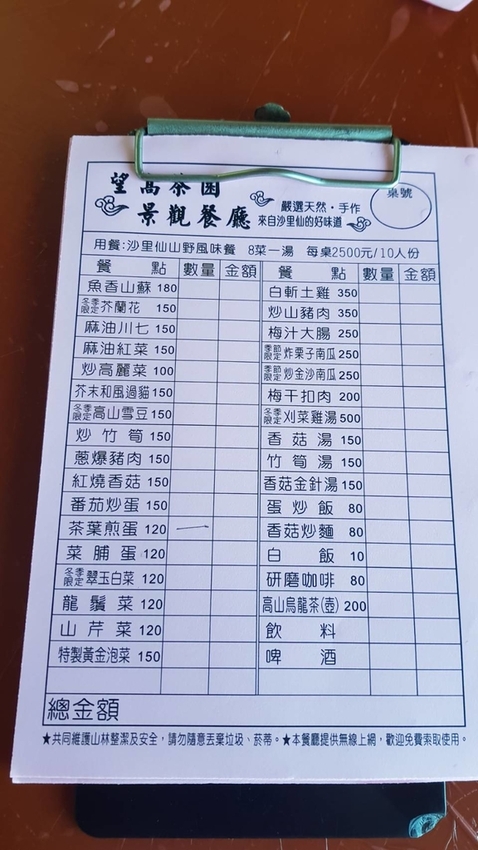 望高茶園
景觀餐廳
嚴選天然・手作
來自沙里仙的好味道
桌號
用餐:沙里仙山野風味餐 8菜一湯 每桌2500元/10人份
餐點 數量 金額 餐點 數量 金額
魚香山蘇 180 白斬土雞 350
冬季限定 芥蘭花 150 炒山豬肉 350
麻油川七 150 梅汁大腸 250
麻油紅菜 150 季節限定 炸栗子南瓜 250
炒高麗菜 100 季節限定 炒金沙南瓜 250
芥末和風過貓 150 梅干扣肉 200
冬季限定 高山雪豆 150 冬季限定 刈菜雞湯 500
炒竹筍 150 香菇湯 150
蔥爆豬肉 150 竹筍湯 150
紅燒香菇 150 香菇金針湯 150
番茄炒蛋 150 蛋炒飯 80
茶葉煎蛋 120 一 香菇炒麵 80
菜脯蛋 120 白飯 10
冬季限定 翠玉白菜 120 研磨咖啡 80
龍鬚菜 120 高山烏龍茶(壺) 200
山芹菜 120 飲料
特製黃金泡菜 150 啤酒
總金額
★共同維護山林整潔及安全，請勿隨意丟棄垃圾、菸蒂。★本餐廳提供無線上網，歡迎免費索取使用。